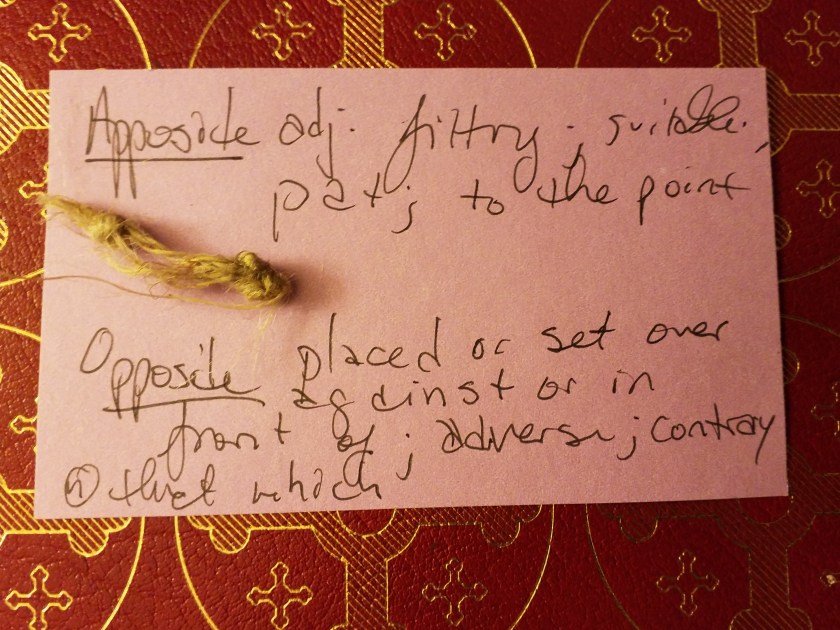 Apposite adj. fitting; suitable;
pat; to the point
Opposite placed or set over
against or in
front of; adverse; contray
n that which